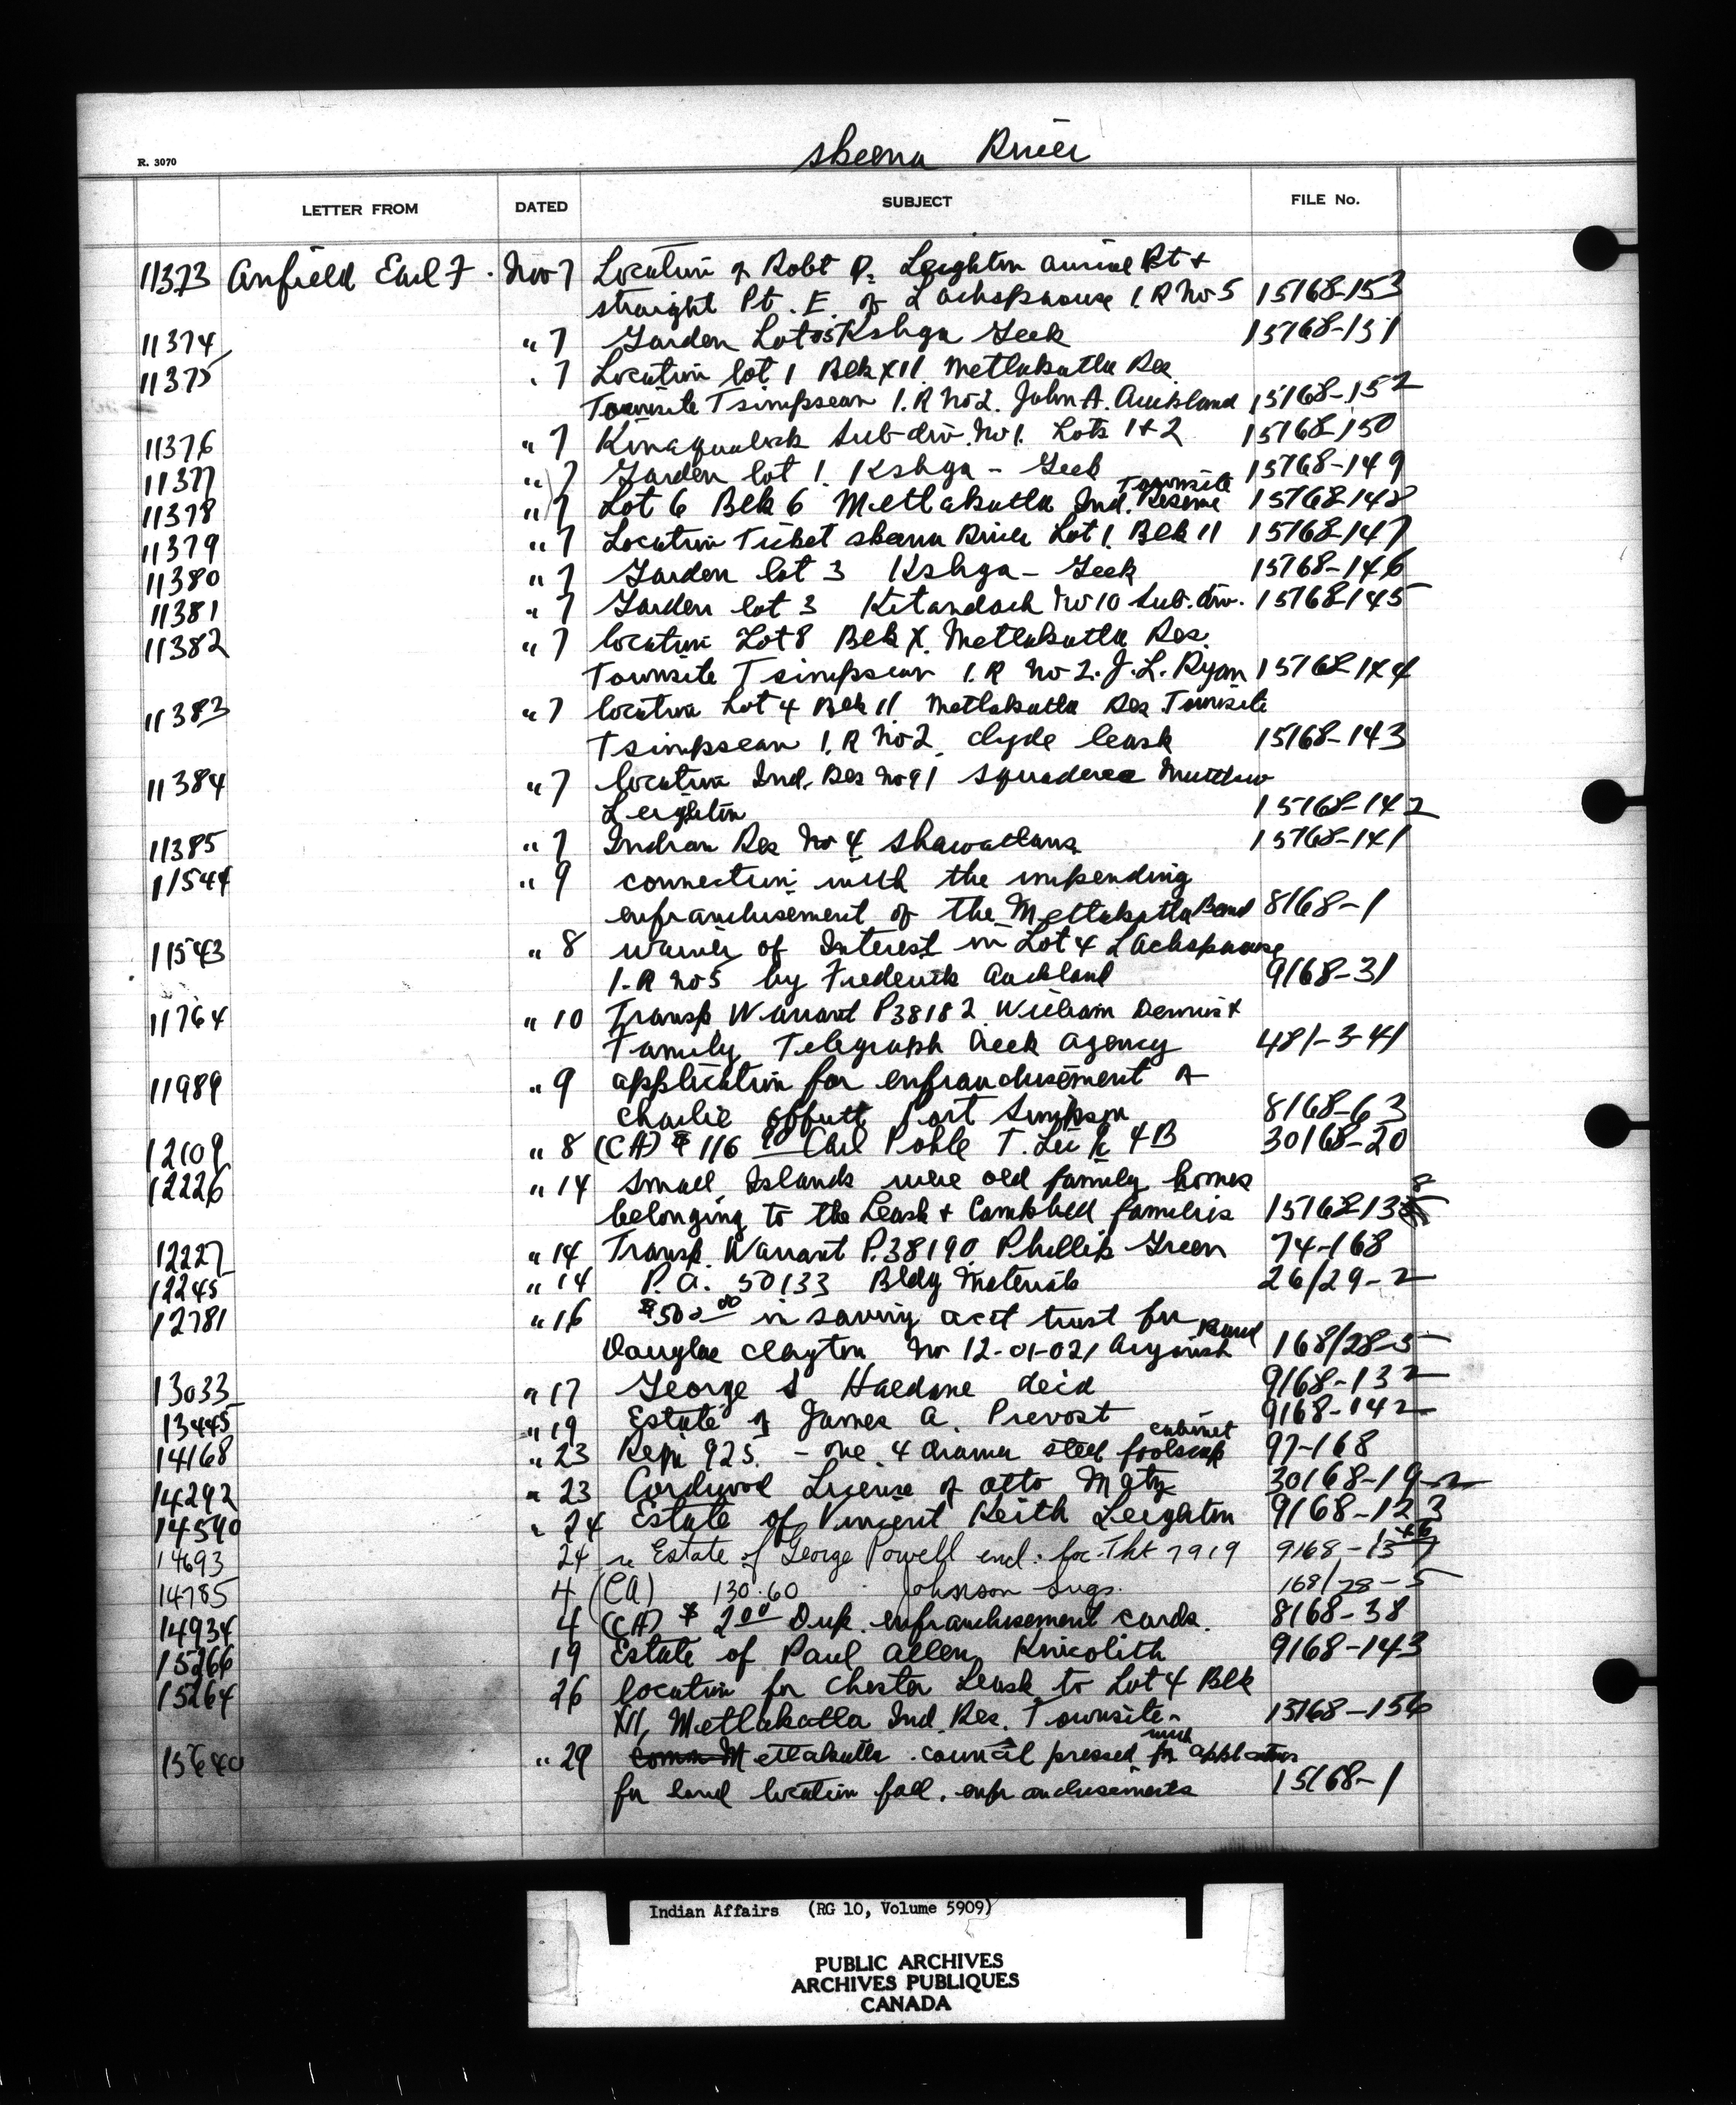 Skeena River
R. 3070
LETTER FROM DATED SUBJECT FILE No.
11373 Anfield Earl F. Nov 7 Location of Robt P. Leighton Pt +
straight Pt. E. of Lachspaouse I.R No 5 15168-153
11374 " 7 Garden Lot Kshga Geek 15168-151
11375 " 7 Location lot 1 Blk XII Metlakatla Res
Townsite Tsimpsean I.R No 2. John A. Auckland 15168-152
11376 " 7 Sub-div. No 1. Lots 1+2 15168-150
11377 " 7 Garden lot 1 Kshga - Geek 15168-149
11378 " 7 Lot 6 Blk 6 Metlakatla Ind. Townsite Reserve 15168-148
11379 " 7 Location Ticket Skeena River Lot 1 Blk 11 15168-147
11380 " 7 Garden lot 3 Kshga - Geek 15168-146
11381 " 7 Garden lot 3 Kitandach No 10 Sub. div. 15168-145
11382 " 7 location Lot 8 Blk X. Metlakatla Res.
Townsite Tsimpsean I.R No 2. J.L. Ryan 15168-144
11383 " 7 location Lot 4 Blk 11 Metlakatla Res Townsite
Tsimpsean I.R No 2 Clyde Leask 15168-143
11384 " 7 location Ind. Res No 91 Squaderee Matthew
Leighton 15168-142
11385 " 7 Indian Res No 4 Shawatlans 15168-141
11544 " 9 connection with the impending
enfranchisement of the Metlakatla Band 8168-1
11543 " 8 waiver of Interest in Lot 4 Lachspaouse
I.R No 5 by Frederick Auckland 9168-31
11764 " 10 Transp Warrant P38182 William Dennis +
Family Telegraph Creek Agency 481-3-41
11989 " 9 application for enfranchisement of
Charlie Offutt Port Simpson 8168-63
12109 " 8 (CA) $116 90 Carl Pohle T. Lic R 4B 30168-20
12226 " 14 Small Islands were old family homes
belonging to the Leask + Campbell families 15168-138
12227 " 14 Transp. Warrant P.38190 Phillip Green 74-168
12245 " 14 P.A. 50133 Bldg Materials 26/29-2
12781 " 16 $50 00 in saving acct trust for
Douglas Clayton No 12-01-021 Band 168/28-5
13033 " 17 George S Haldane decd 9168-132
13445 " 19 Estate of James A. Prevost 9168-142
14168 " 23 Reqn 925 - one 4 drawer steel foolscap cabinet 97-168
14292 " 23 Cordwood License of Otto Matz 30168-19-2
14540 " 24 Estate of Vincent Keith Leighton 9168-123
14693 24 re Estate of George Powell encl. for Tkt 7919 9168-
14785 4 (CA) 130.60 Johnson 168/28-5
14934 4 (CA) $2 00 Dup. enfranchisement cards. 8168-38
15266 19 Estate of Paul Allen 9168-143
15264 26 location for Chester Leask to Lot 4 Blk
XII, Metlakatla Ind. Res. Townsite- 15168-156
15640 " 29 Metlakatla council pressed with applications
for land location foll. enfranchisements 15168-1
Indian Affairs (RG 10, Volume 5909)
PUBLIC ARCHIVES
ARCHIVES PUBLIQUES
CANADA